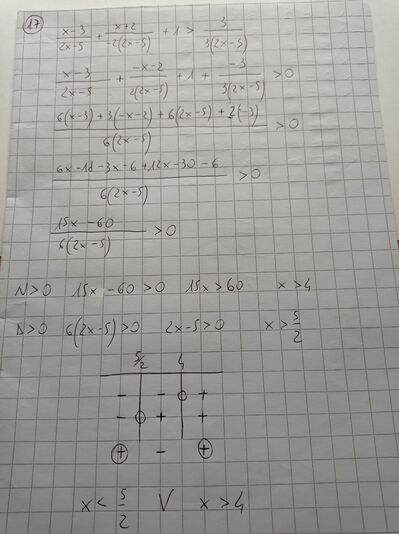 17
(x-3)/(2x-5) + (x+2)/(-2(2x-5)) + 1 > 3/(3(2x-5))
(x-3)/(2x-5) + (-x-2)/(2(2x-5)) + 1 + (-3)/(3(2x-5)) > 0
(6(x-3) + 3(-x-2) + 6(2x-5) + 2(-3))/(6(2x-5)) > 0
(6x-18-3x-6+12x-30-6)/(6(2x-5)) > 0
(15x-60)/(6(2x-5)) > 0
N>0 15x-60>0 15x>60 x>4
D>0 6(2x-5)>0 2x-5>0 x>5/2
5/2 4
- - +
- + +
+ - +
x < 5/2 V x > 4